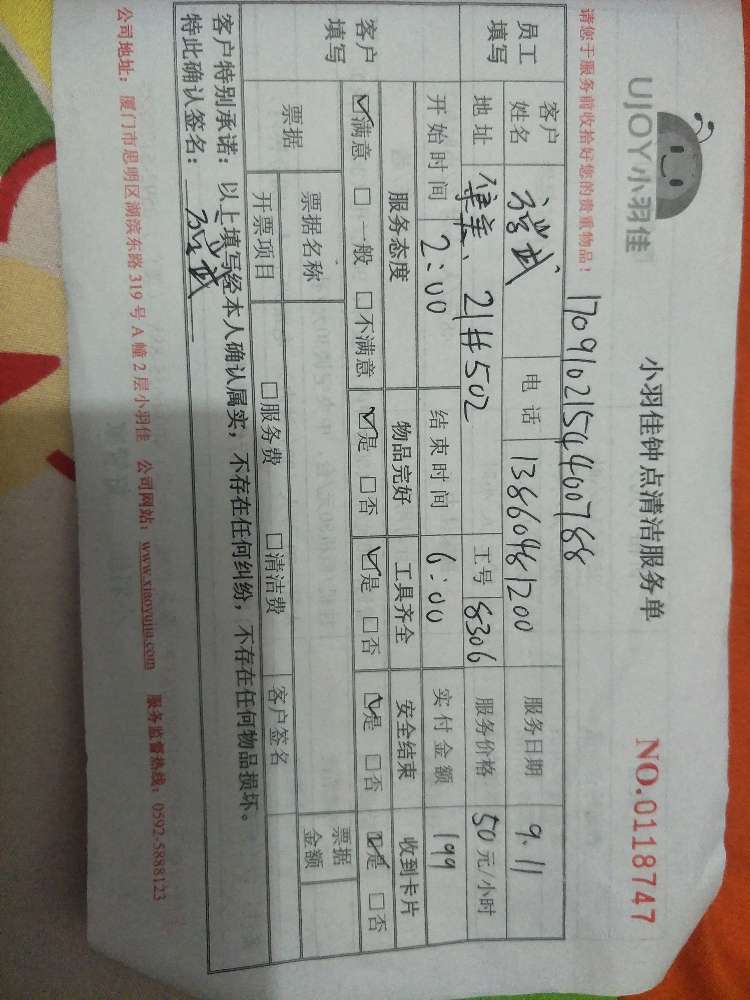 UJOY小羽佳
小羽佳钟点清洁服务单
NO.0118747
请您于服务前收拾好您的贵重物品！
1709102154400788
员工填写
客户姓名
电话 13860481200
服务日期 9.11
地址
21#502
工号 8306
服务价格 50元/小时
开始时间 2:00
结束时间 6:00
实付金额 199
客户填写
服务态度 物品完好 工具齐全 安全结束 收到卡片
☑满意 □一般 □不满意 ☑是 □否 ☑是 □否 ☑是 □否 ☑是 □否
票据 票据名称 票据金额
开票项目 □服务费 □清洁费 客户签名
客户特别承诺：以上填写经本人确认属实，不存在任何纠纷，不存在任何物品损坏。
特此确认签名：
公司地址：厦门市思明区湖滨东路 319 号 A 幢 2 层小羽佳 公司网站：www.xiaoyujia.com 服务监督热线：0592-5888123